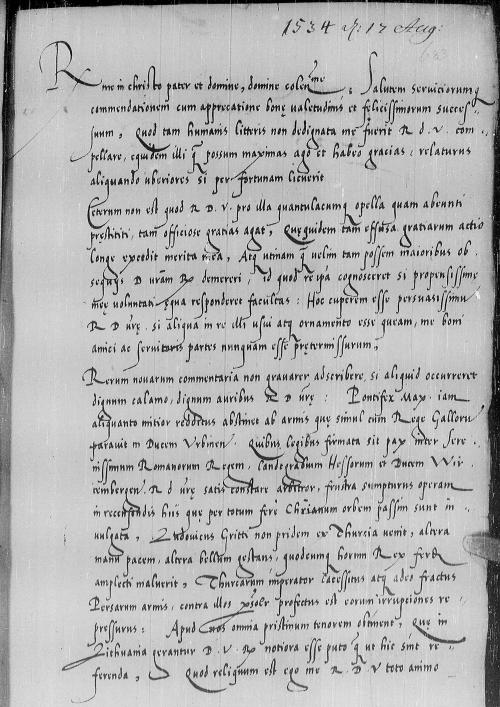 1534 17 Aug:
R me in christo pater et domine, domine colen me : Salutem serviciorumq
commendationem cum apprecatione bonę valetudinis et felicissimorum succes-
suum, Quod tam humanis litteris non dedignata me fuerit R d. V. com
pellare, equidem illi q possum maximas ago et habeo gratias: relaturus
aliquando uberiores si per fortunam licuerit
Ceterum non est quod R D. V. pro illa quantulacumq opella quam abeunti
pręstiti, tam officiose gratias agat, Quęquidem tam effusa gratiarum actio
longe excedit merita mea, Atq utinam q velim tam possem maioribus ob
sequijs D vram R demereri, id quod reipa cognosceret si propensissimę
meę voluntati ęqua responderet facultas: Hoc cuperem esse persuasissimu
R D vrę. si aliqua in re illi usui atq ornamento esse queam, me boni
amici ac servitoris partes nunquam esse prętermissurum,
Rerum novarum commentaria non gravarer adscribere, si aliquid occurreret
dignum calamo, dignum auribus R D vrę: Pontifex Max. iam
aliquanto mitior redditus abstinet ab armis quę simul cum Rege Galloru
paravit in Ducem Urbinen. Quibus legibus firmata sit pax inter Sere-
nissimum Romanorum Regem, Landgravium Hessorum et Ducem Wir
tembergen. R d vrę satis constare arbitror, frustra sumpturus operam
in recensendis hiis que per totum fere Chrianum orbem passim sunt in
vulgata, Ludovicus Gritti non pridem ex Thurcia venit, altera
manu pacem, altera bellum gestans, quodcunq horum Rex ferd
amplecti maluerit, Thurcarum imperator lacessitus atq adeo fractus
Persarum armis, contra illos psolr profectus est eorum irruptiones re-
pressurus: Apud nos omnia pristinum tenorem obtinent, Quę in
Lithuania gerantur D. V. R notiora esse puto q ut hic sint re
ferenda, Quod reliquum est ego me R. D. V toto animo